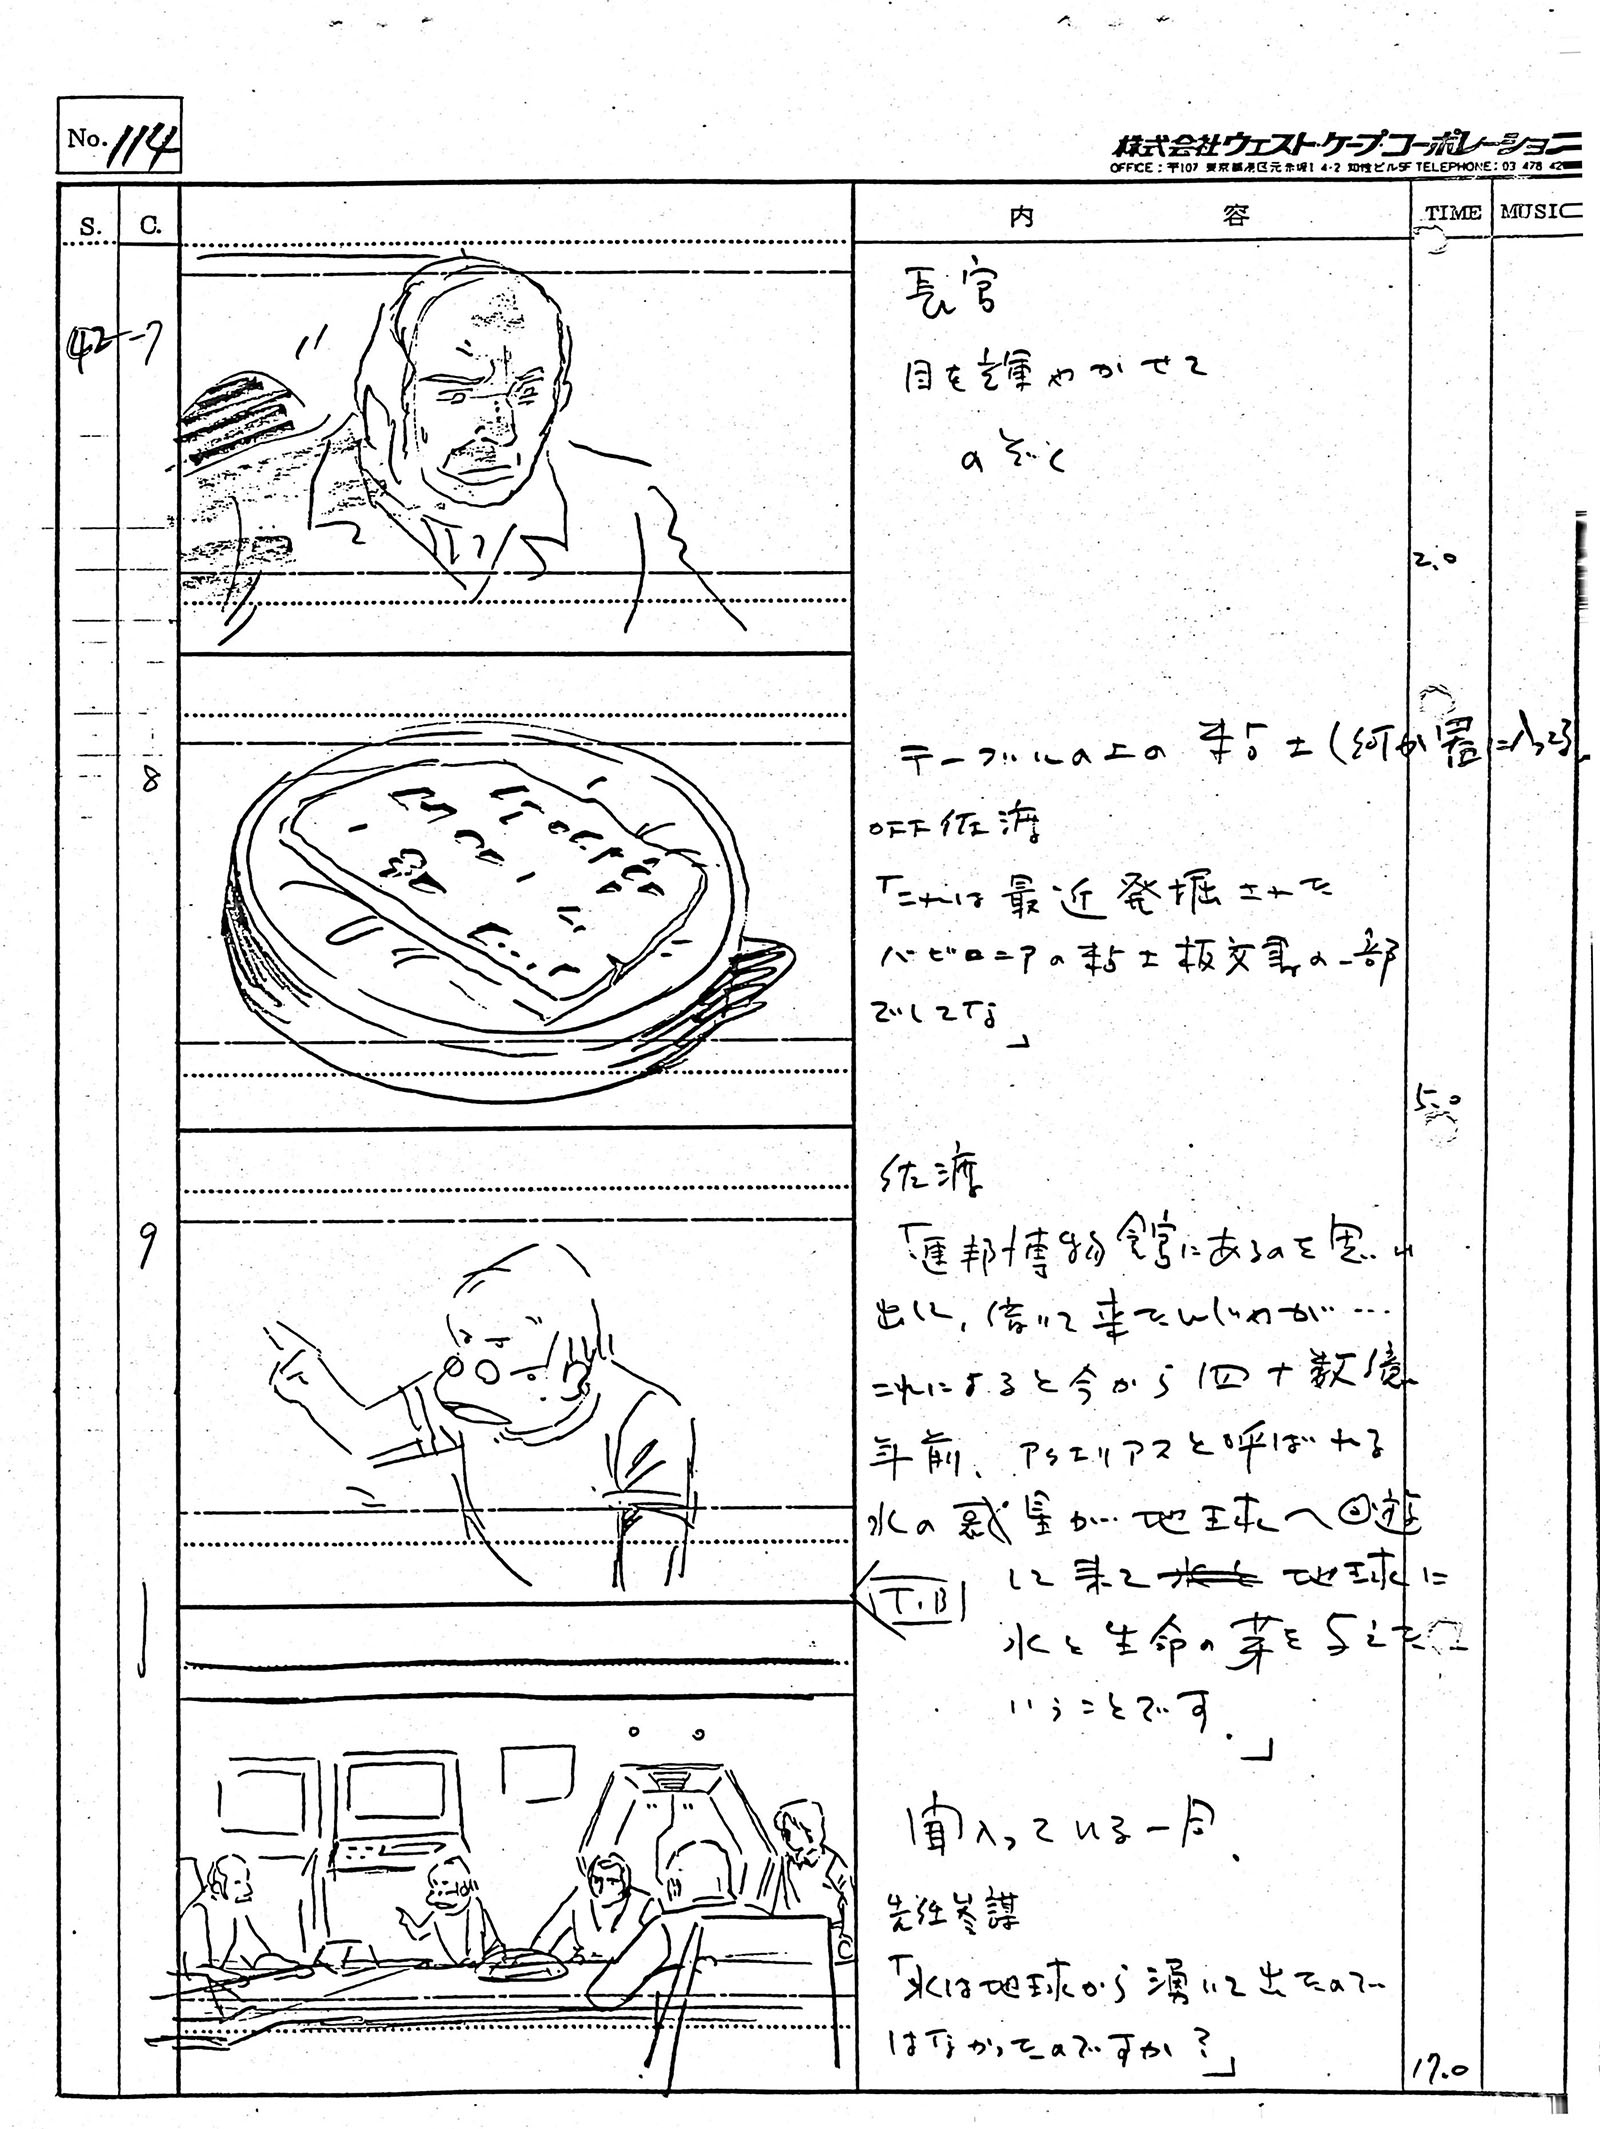 No. 114
株式会社ウェスト・ケープ・コーポレーション
OFFICE：〒107 東京都港区元赤坂1 4-2 知性ビル5F TELEPHONE：03 478 42
S. C. 内 容 TIME MUSIC
42-7
長官
目を輝やかせて
のぞく
2.0
8
テーブルの上の粘土(何か器に入ってる)
OFF佐渡
「これは最近発掘された
バビロニアの粘土板文書の一部
でしてな」
5.0
9
佐渡
「連邦博物館にあるのを思い
出し、借りて来たんじゃが…
これによると今から四十数億
年前、アクエリアスと呼ばれる
水の惑星が地球へ回遊
して来て 地球に
T.B
水と生命の芽を与えたと
いうことです.」
聞入っている一同.
先任参謀
「水は地球から湧いて出たので
はなかったのですか？」
17.0